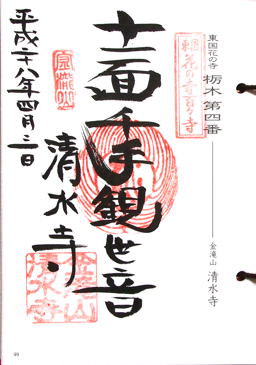 東国花の寺
栃木 第四番
金滝山 清水寺
東国花の寺百ヶ寺
十一面千手観世音
清水寺
金瀧山
平成二十八年四月三日
金瀧山
清水寺
99